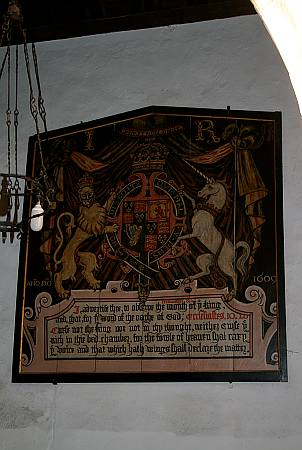 I R
AÑO DO 1609
I advertise thee, to observe the mouth of yᵉ king
and that, for yᵉ word of the oathe of God; Ecclesiastes.10.20
Curse not the king, noe not in thy thought, neither curse yᵉ
rich in thy bed chamber, for the fowle of heaven shall cary
yᵉ voice and that which hath wings shall declare the matter.